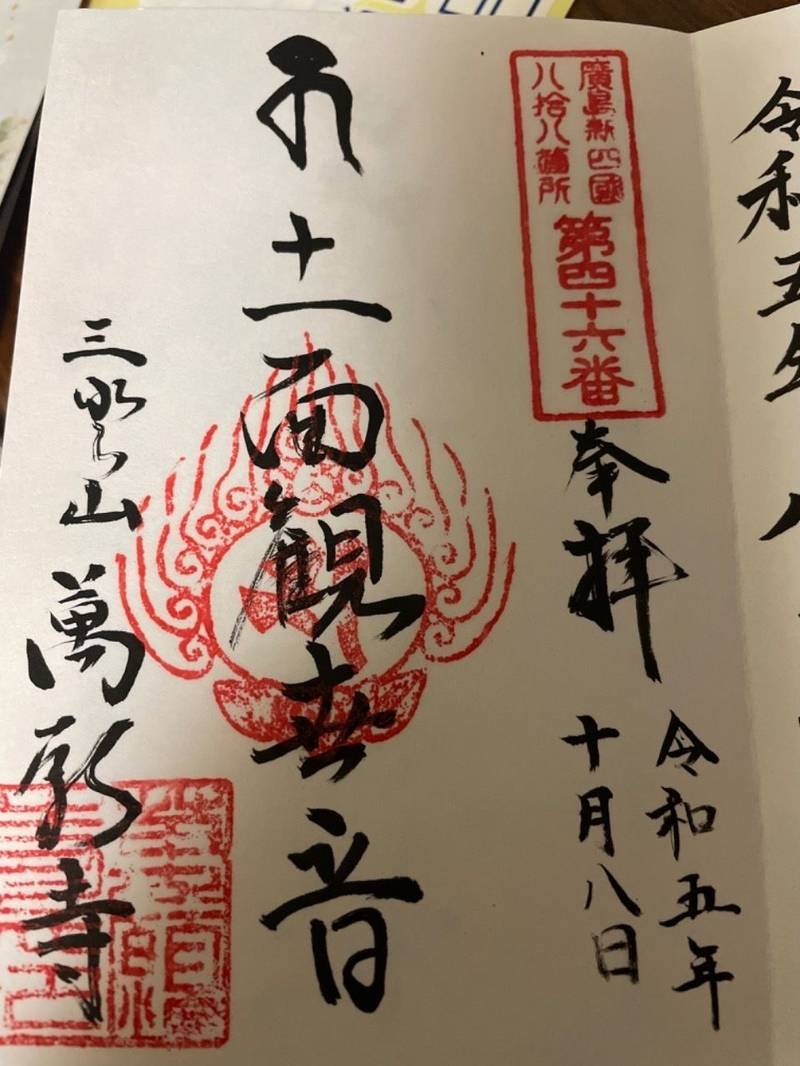 令和五年
廣島新四國
八拾八箇所
第四十六番
奉拝
令和五年
十月八日
十一面観世音
萬願寺